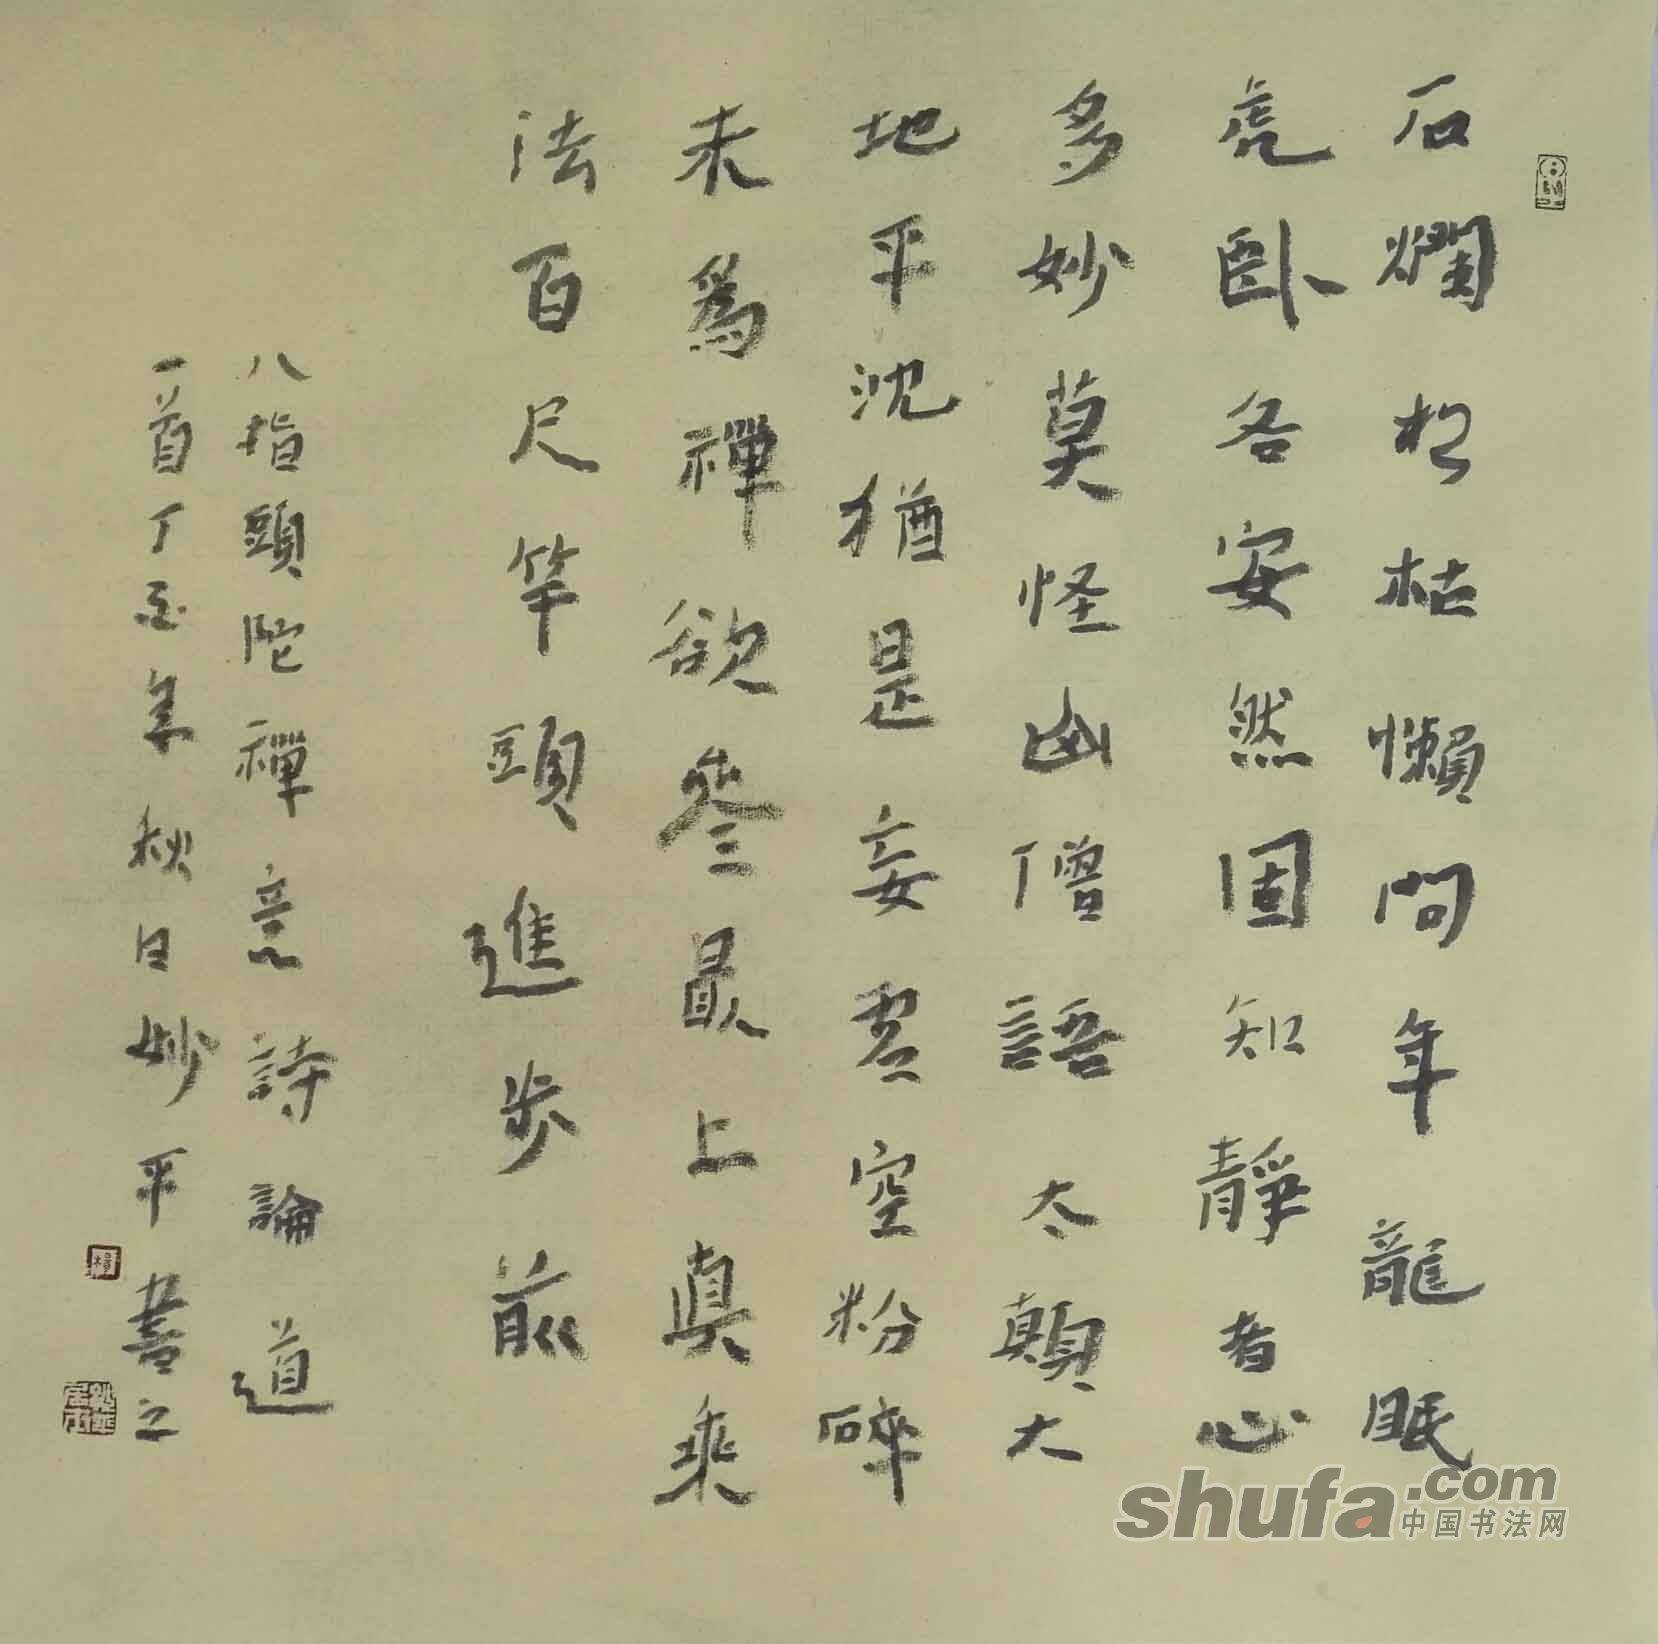 石爛松枯懶問年龍眠
虎卧各安然固知靜者心
多妙莫怪幽僧語太顛大
地平沈猶是妄虛空粉碎
未為禪欲參最上真乘
法百尺竿頭進步前
八指頭陀禪意詩論道
一首丁酉年秋日妙平書之
shufa.com
中国书法网